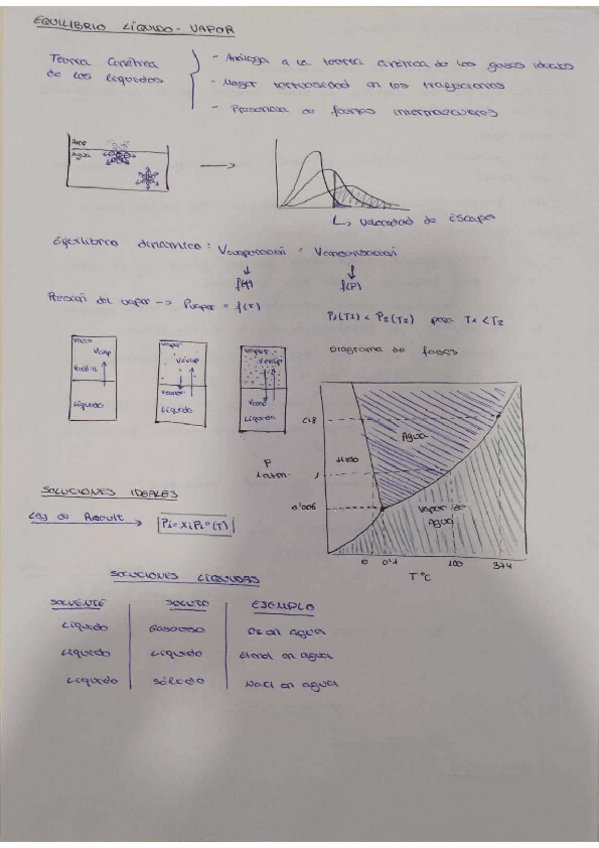 EQUILIBRIO LÍQUIDO - VAPOR
Teoría Cinética de los líquidos
- Análoga a la teoría cinética de los gases ideales
- Mayor tortuosidad en las trayectorias
- Presencia de fuerzas intermoleculares
Aire
Agua
→ velocidad de escape
Equilibrio dinámico: Vevaporación = Vcondensación
f(T) f(P)
Presión del vapor → Pvapor = f(T)
P1(T1) < P2(T2) para T1 < T2
Diagrama de fases
vacío
Vevap
Líquido
vapor
Vevap
Vcond
Líquido
vapor
Vevap
Vcond
Líquido
P
1 atm.
218
1
0'006
Hielo
Agua
Vapor de Agua
0 0'01 100 374
T °C
SOLUCIONES IDEALES
Ley de Raoult → Pi = xi Pi°(T)
SOLUCIONES LÍQUIDAS
SOLVENTE SOLUTO EJEMPLO
Líquido Gaseoso O2 en agua
Líquido Líquido Etanol en agua
Líquido Sólido NaCl en agua